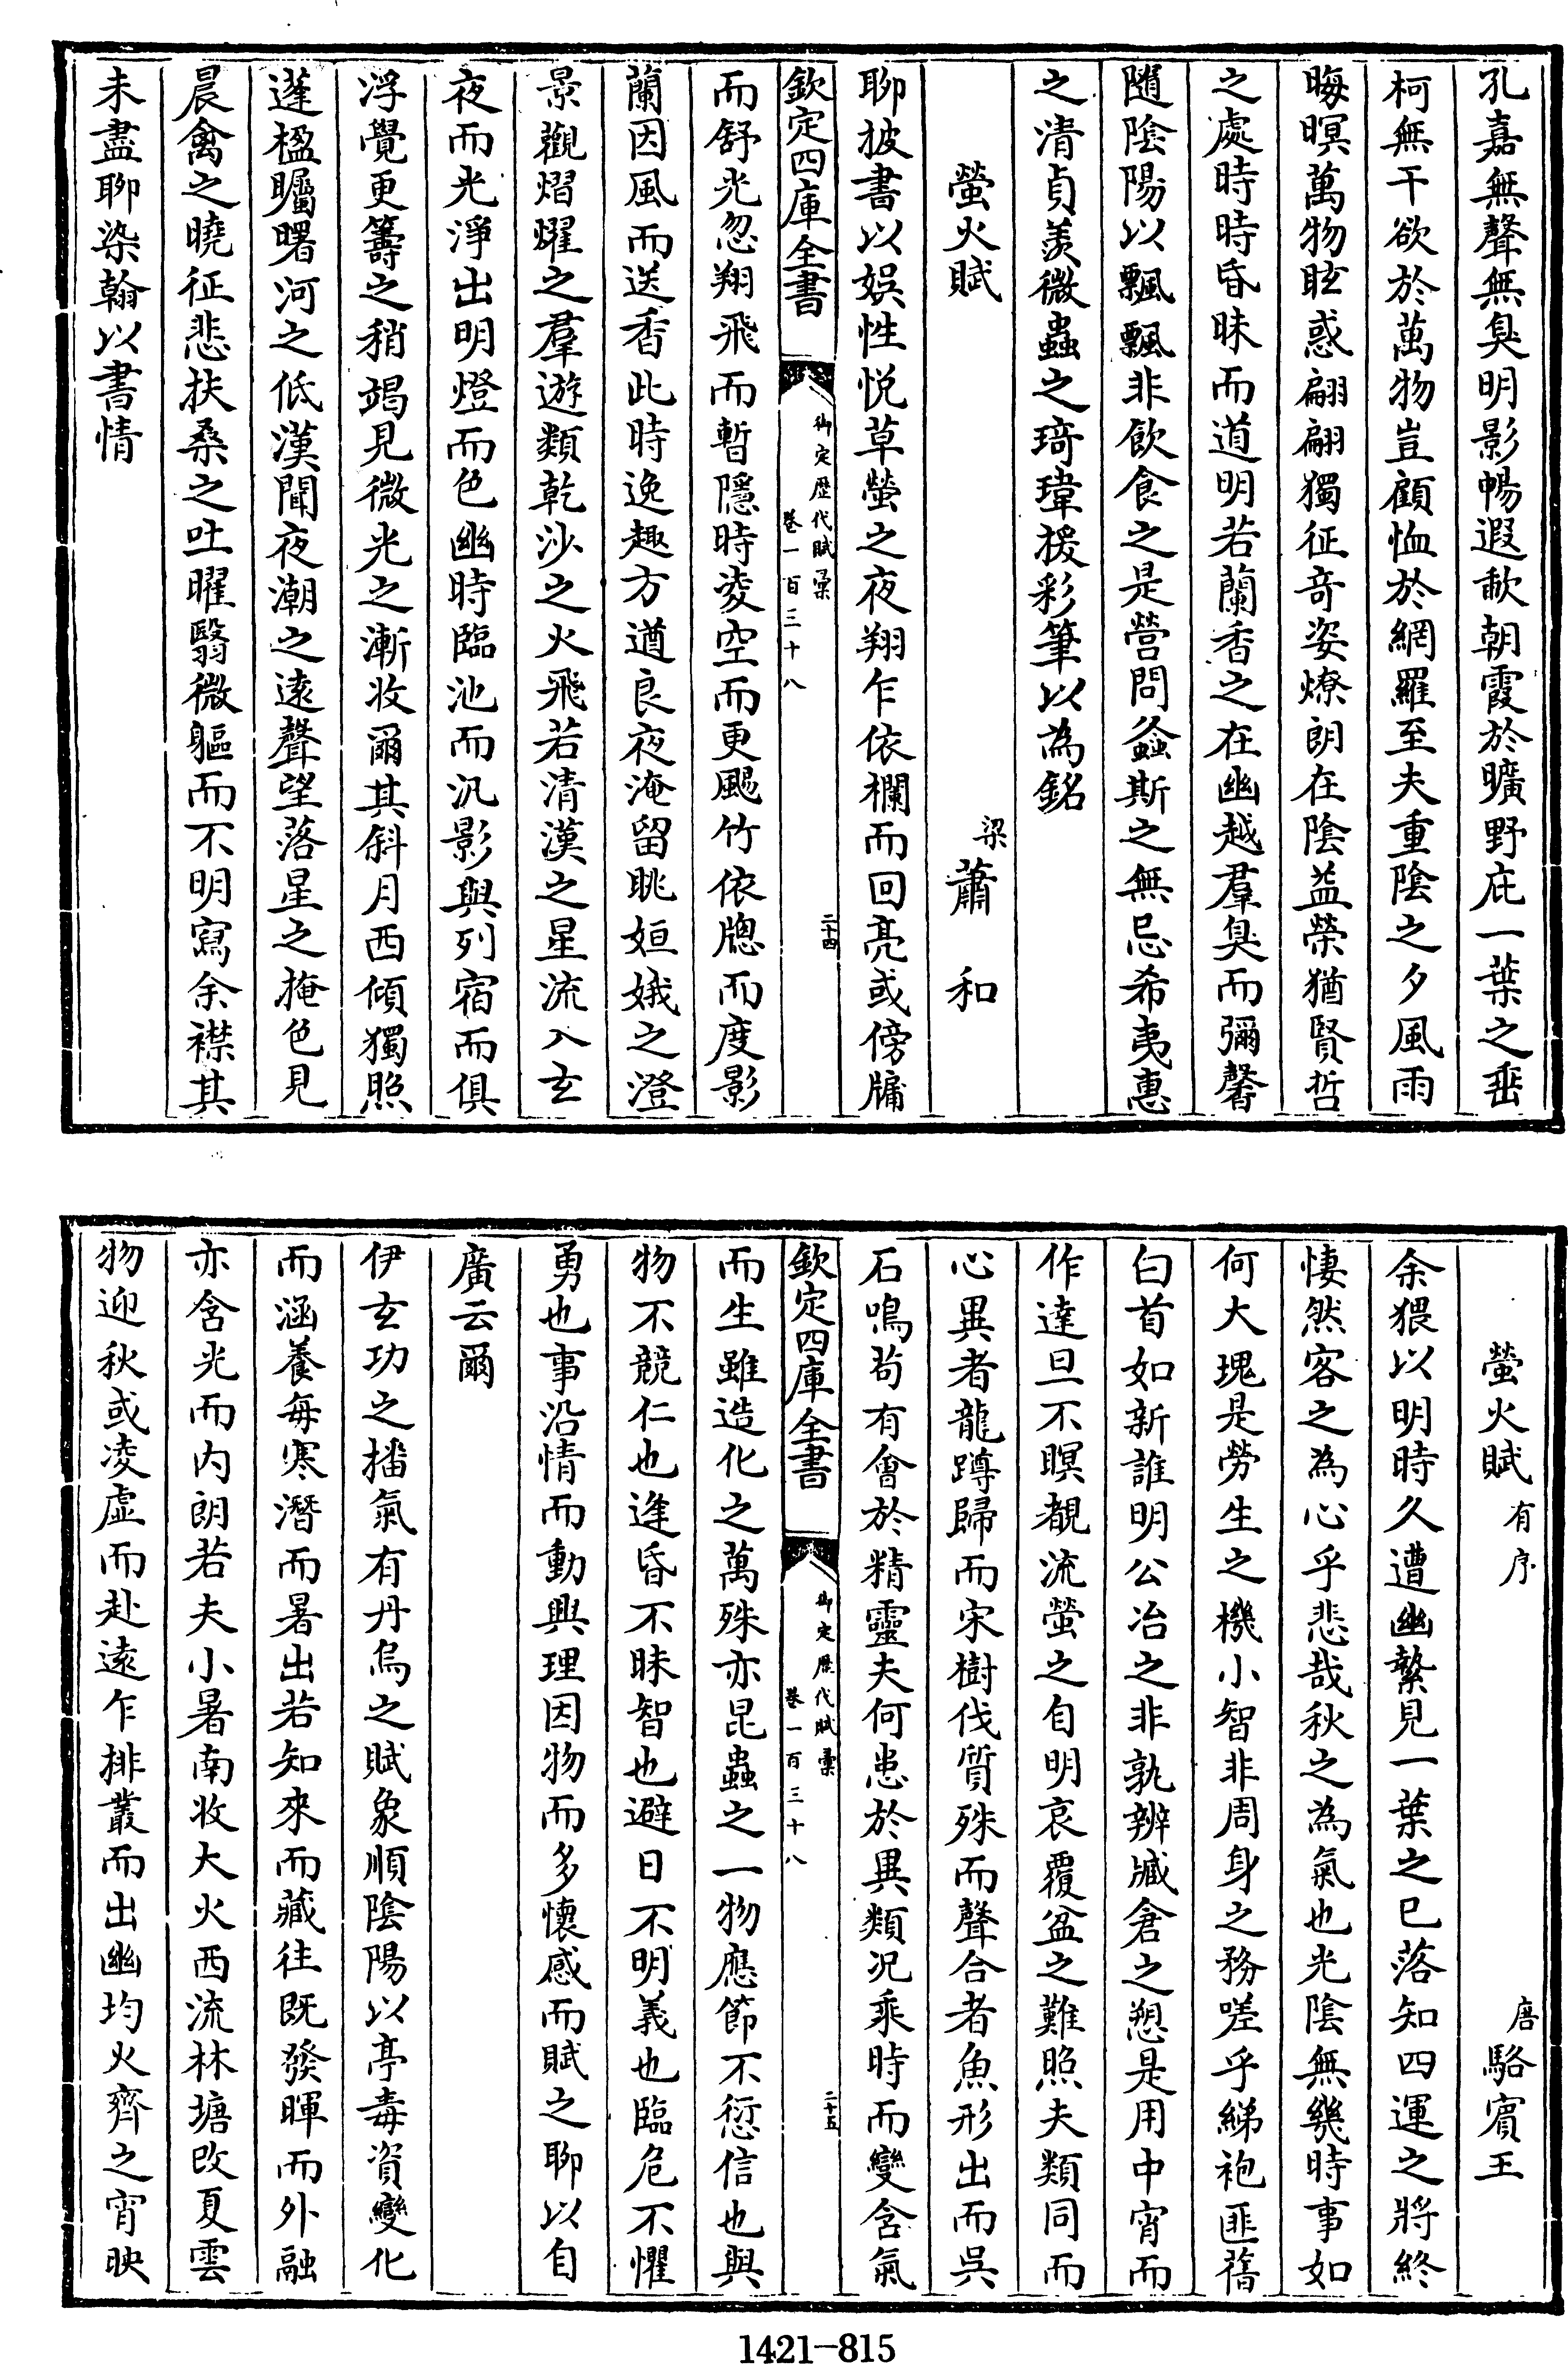 孔嘉無聲無臭明影暢遐歊朝霞於曠野庇一葉之垂
柯無干欲於萬物豈顧恤於網羅至夫重陰之夕風雨
晦暝萬物眩惑翩翩獨征奇姿燎朗在陰益榮猶賢哲
之處時時昏昧而道明若蘭香之在幽越羣臭而彌馨
隨陰陽以飄飄非飲食之是營問螽斯之無忌希夷惠
之清貞羨微蟲之琦瑋援彩筆以為銘
螢火賦
梁蕭和
聊披書以娯性悦草螢之夜翔乍依欄而回亮或傍牖
欽定四庫全書
御定歴代賦彙
卷一百三十八
二十四
而舒光忽翔飛而暫隱時凌空而更颺竹依牕而度影
蘭因風而送香此時逸趣方遒良夜淹留眺姮娥之澄
景觀熠燿之羣遊類乾沙之火飛若清漢之星流入玄
夜而光淨出明燈而色幽時臨池而汎影與列宿而俱
浮覺更籌之稍竭見微光之漸收爾其斜月西傾獨照
蓬楹矚曙河之低漢聞夜潮之遠聲望落星之掩色見
晨禽之曉征悲扶桑之吐曜翳微軀而不明寫余襟其
未盡聊染翰以書情
螢火賦有序
唐駱賓王
余猥以明時久遭幽縶見一葉之已落知四運之將終
悽然客之為心乎悲哉秋之為氣也光陰無幾時事如
何大塊是勞生之機小智非周身之務嗟乎綈袍匪舊
白首如新誰明公冶之非孰辨臧倉之愬是用中宵而
作達旦不瞑覩流螢之自明哀覆盆之難照夫類同而
心異者龍蹲歸而宋樹伐質殊而聲合者魚形出而吳
石鳴苟有會於精靈夫何患於異類况乘時而變含氣
欽定四庫全書
御定歴代賦彙
卷一百三十八
二十五
而生雖造化之萬殊亦昆蟲之一物應節不愆信也與
物不競仁也逢昏不昧智也避日不明義也臨危不懼
勇也事沿情而動興理因物而多懷感而賦之聊以自
廣云爾
伊玄功之播氣有丹烏之賦象順陰陽以亭毒資變化
而涵養每寒潛而暑出若知來而藏往既發暉而外融
亦含光而内朗若夫小暑南收大火西流林塘改夏雲
物迎秋或凌虛而赴遠乍排叢而出幽均火齊之宵映
1421-815